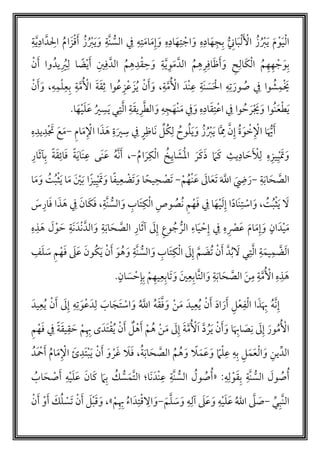 الْيَوْمَ يَبْرُزُ الْأَلْبَانِيُّ بِجِهَادِهِ وَاجْتِهَادِهِ وَإِمَامَتِهِ فِي السُّنَّةِ وَيَبْرُزُ أَقْزَامُ الْحِدَادِيَّةِ
بِوَجْهِهِمُ الْكَالِحِ وَأَظَافِرِهِمُ الدَّمَوِيَّةِ وَحِقْدِهِمُ الدَّفِينِ أَيْضًا لِيُرِيدُوا أَنْ
يَخْمِشُوا فِي صُورَتِهِ الْحَسَنَةِ عِنْدَ الْأُمَّةِ، وَأَنْ يُزَعْزِعُوا ثِقَةَ الْأُمَّةِ بِعِلْمِهِ، وَأَنْ
يَطْعَنُوا وَيَجْرَحُوا فِي اعْتِقَادِهِ وَفِي مَنْهَجِهِ وَالطَّرِيقَةِ الَّتِي يَسِيرُ عَلَيْهَا.
أَيُّهَا الْإِخْوَةُ إِنَّ مِمَّا يَبْرُزُ وَيَلُوحُ لِكُلِّ نَاظِرٍ فِي سِيرَةِ هَذَا الْإِمَامِ -مَعَ تَجْدِيدِهِ
وَتَمْيِيزِهِ لِأَحَادِيثِ كَمَا ذَكَرَ الْمَشَايِخُ الْكِرَامُ- أَنَّهُ، عَنَى عِنَايَةً فَائِقَةً بِآثَارِ
الصَّحَابَةِ -رَضِيَ اللهُ تَعَالَى عَنْهُمْ- أَنْ تَصْحِيحًا وَتَضْعِيفًا وَتَمْيِيزًا بَيْنَ مَا يَثْبُتُ وَمَا
لَا يَثْبُتُ، وَاسْتِنَادًا إِلَيْهَا فِي فَهْمِ نُصُوصِ الْكِتَابِ وَالسُّنَّةِ، فَكَانَ فِي هَذَا فَارِسَ
مَيْدَانٍ وَإِمَامَ عَصْرِهِ فِي إِحْيَاءِ الرُّجُوعِ إِلَى آثَارِ الصَّحَابَةِ وَالدَّنْدَنَةِ حَوْلَ هَذِهِ
الضَّمِيمَةِ الَّتِي لَابُدَّ أَنْ تُضَمَّ إِلَى الْكِتَابِ وَالسُّنَّةِ وَهُوَ أَنْ يَكُونَ عَلَى فَهْمِ سَلَفِ
هَذِهِ الْأُمَّةِ مِنَ الصَّحَابَةِ وَالتَّابِعِينَ وَتَابِعِيهِمْ بِإِحْسَانٍ.
إِنَّهُ بِهَذَا الْفِعْلِ أَرَادَ أَنْ يُعِيدَ مَنْ وَفَّقَهُ اللهُ وَاسْتَجَابَ لِدَعْوَتِهِ إِلَى أَنْ يُعِيدَ
الْأُمُورَ إِلَى نِصَابِهَا، وَأَنْ يَرُدَّ الْأُمَّةَ إِلَى مَنْ هُمْ أَهْلٌ أَنْ يُقْتَدَى بِهِمْ حَقِيقَةً فِي فَهْمِ
الدِّينِ وَالْعَمَلِ بِهِ عِلْمًا وَعَمَلًا وَهُمُ الصَّحَابَةُ، فَلَا غَرْوَ أَنْ يَبْتَدِئَ الْإِمَامُ أَحْمَدُ
أُصُولَ السُّنَّةِ بِقَوْلِهِ: «أُصُولُ السُّنَّةِ عِنْدَنَا؛ التَّمَسُّكُ بِمَا كَانَ عَلَيْهِ أَصْحَابُ
النَّبِيِّ -صَلَّى اللهُ عَلَيْهِ وَعَلَى آلِهِ وَسَلَّمَ- وَالِاقْتِدَاءُ بِهِمْ»، وَقَبْلَ أَنْ تَسْلُكَ أَوْ أَنْ